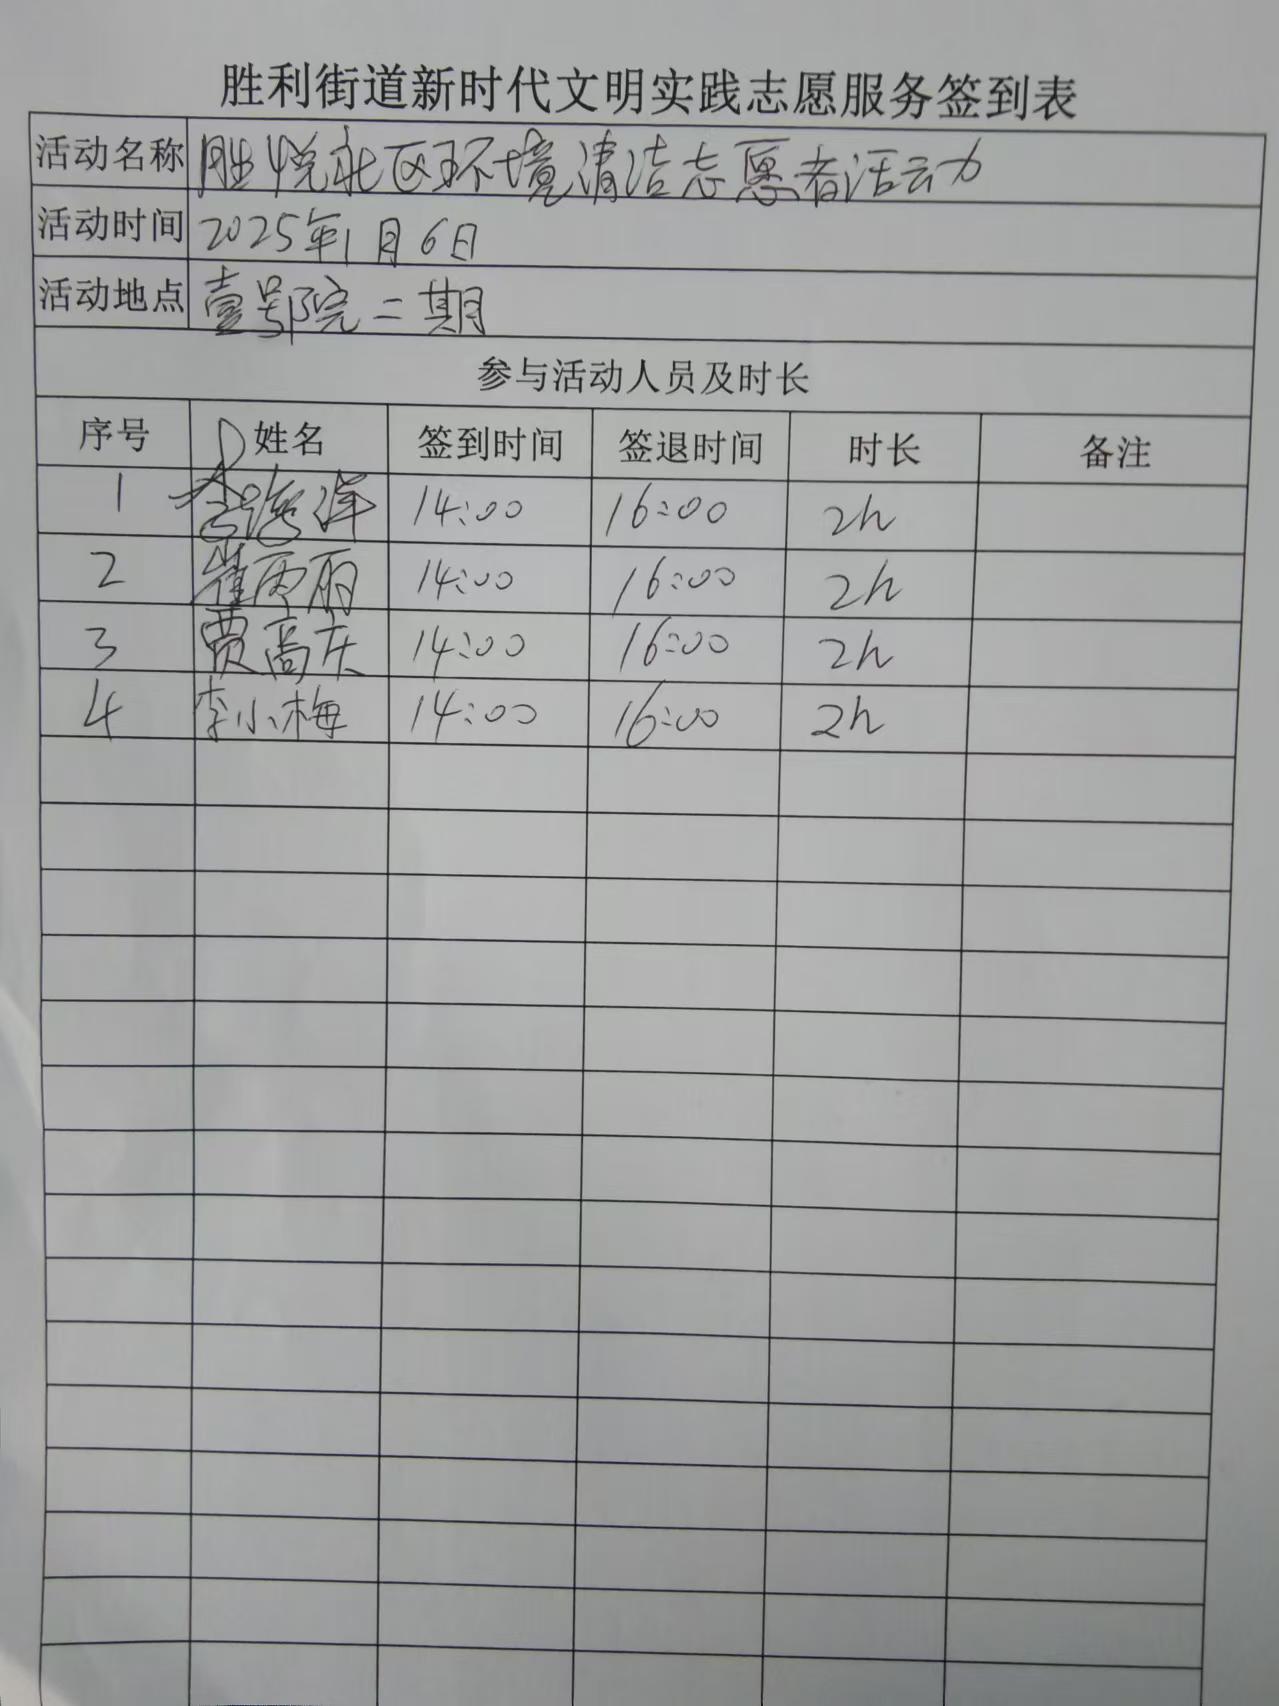 胜利街道新时代文明实践志愿服务签到表
活动名称 胜悦社区环境清洁志愿者活动
活动时间 2025年1月6日
活动地点 壹号院二期
参与活动人员及时长
序号 姓名 签到时间 签退时间 时长 备注
1 李海洋 14:00 16:00 2h
2 崔丽 14:00 16:00 2h
3 贾高庆 14:00 16:00 2h
4 李小梅 14:00 16:00 2h